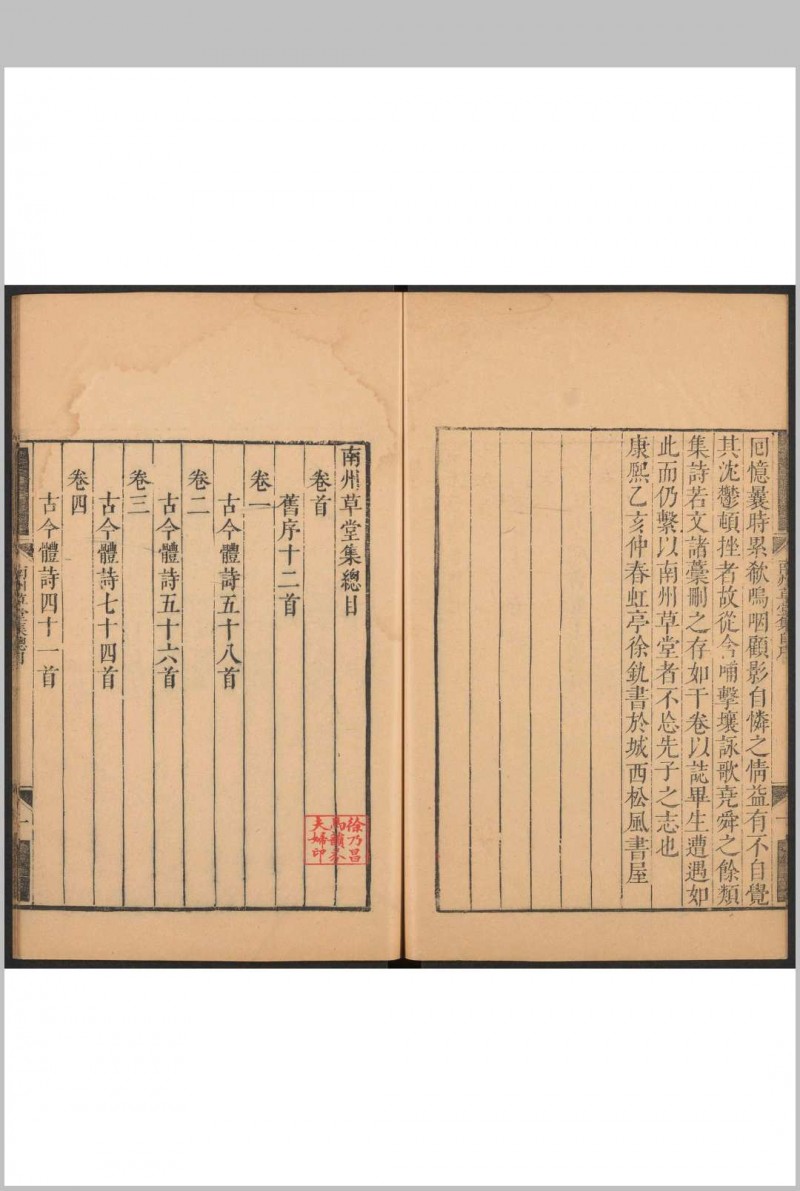 回憶曩時累欷嗚咽顧影自憐之情益有不自覺
其沈鬱頓挫者故從含哺擊壤詠歌堯舜之餘類
集詩若文諸藁刪之存如干卷以誌畢生遭遇如
此而仍繫以南州草堂者不忘先子之志也
康熙乙亥仲春虹亭徐釚書於城西松風書屋
南州草堂集自序
一
南州草堂集總目
卷首
舊序十二首
卷一
古今體詩五十八首
卷二
古今體詩五十六首
卷三
古今體詩七十四首
卷四
古今體詩四十一首
南州草堂集總目
一
徐乃昌
馬韻芬
夫婦印